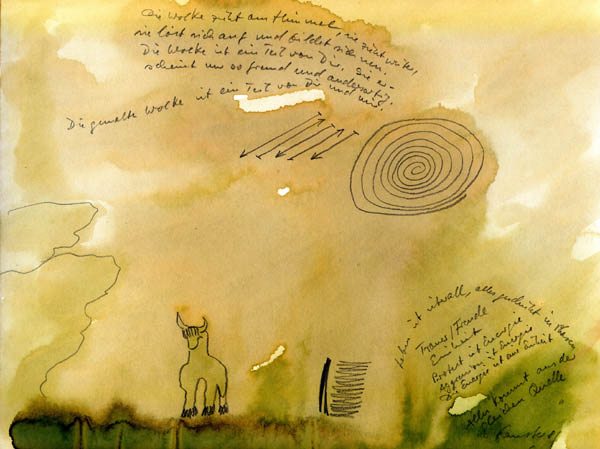 Die Wolke zieht am Himmel, sie zieht weiter,
sie löst sich auf und bildet sich neu.
Die Wolke ist ein Teil von Dir. Sie er-
scheint nur so fremd und andersartig.
Die gemalte Wolke ist ein Teil von Dir und mir.
Leben ist überall, alles geschieht in
Trauer/Freude
Einheit
Protest ist Energie
Aggression ist Energie
Energie ist
Alles kommt aus der
gleichen Quelle